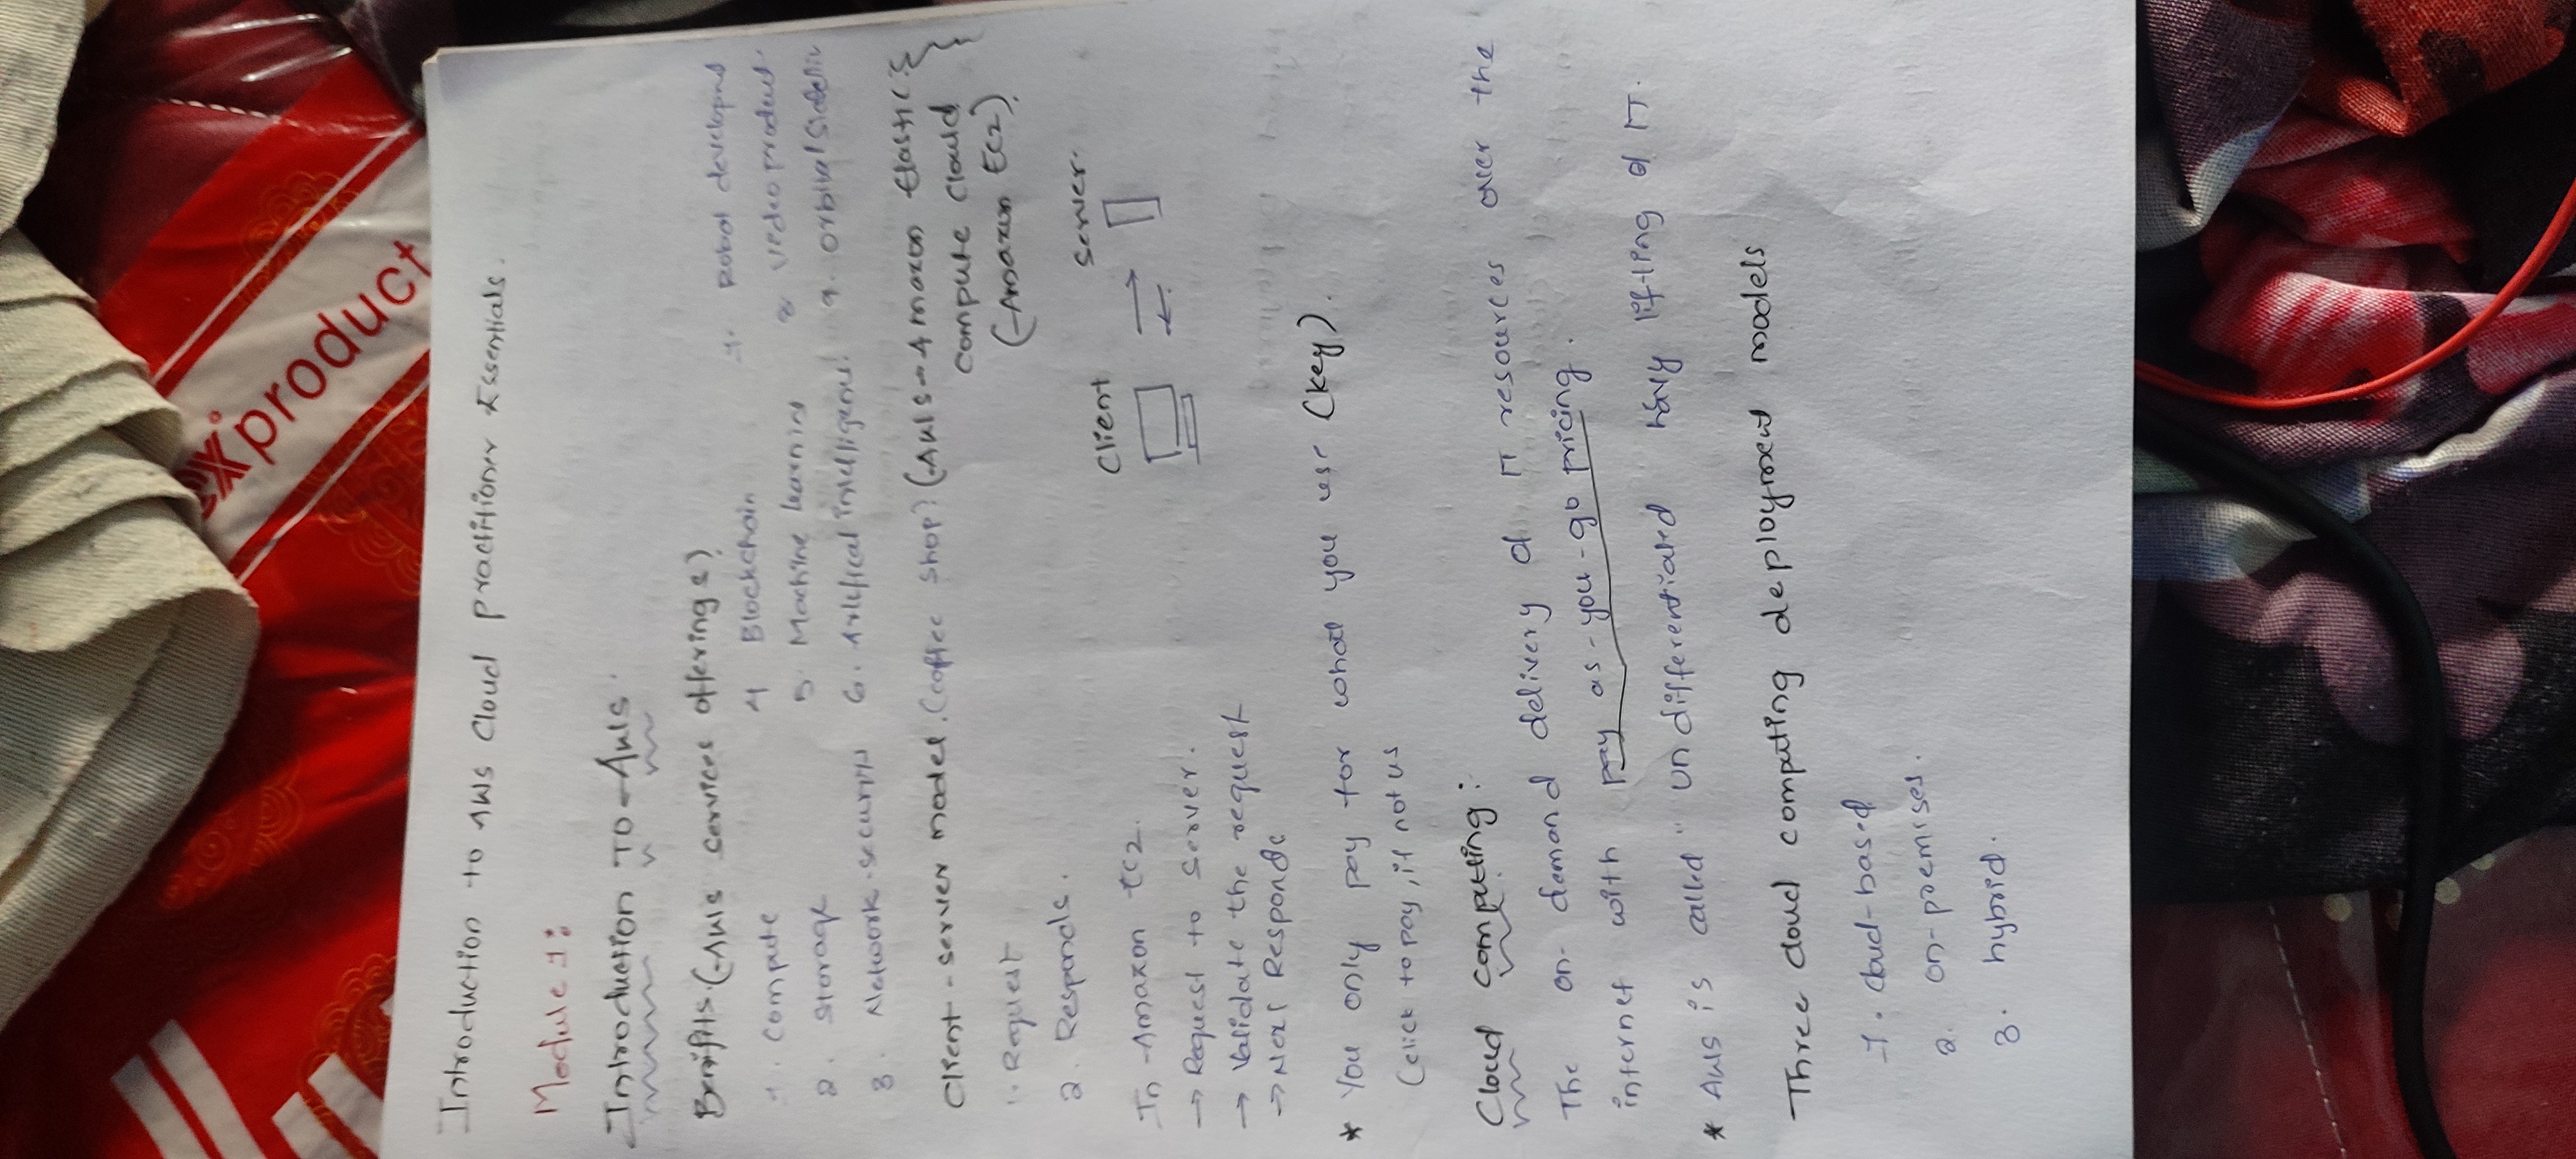 exproduct
Introduction to AWS Cloud Practitioner Essentials.
Module 1:
Introduction TO AWS
Benifits (AWS services offerings)
1. Compute
2. Storage
3. Network security
4 Blockchain
5. Machine learning
6. Artifical intelligence
7. Robot developmt
8 Video product
9. Orbital
Client-server model. (coffee shop) (AWS - Amazon Elastic
compute cloud
(Amazon EC2)
1. Request
2. Responds.
Client
Server.
In Amazon EC2.
→ Request to server.
→ Validate the request
→ Next Responds
* You only pay for what you use (key).
(click to pay, if not us
Cloud computing:
The on-demand delivery of IT resources over the
internet with pay as-you-go pricing.
* AWS is called " Undifferentiated havy lifting of IT.
Three cloud computing deployment models
1. cloud-based
2. on-premises.
3. hybrid.